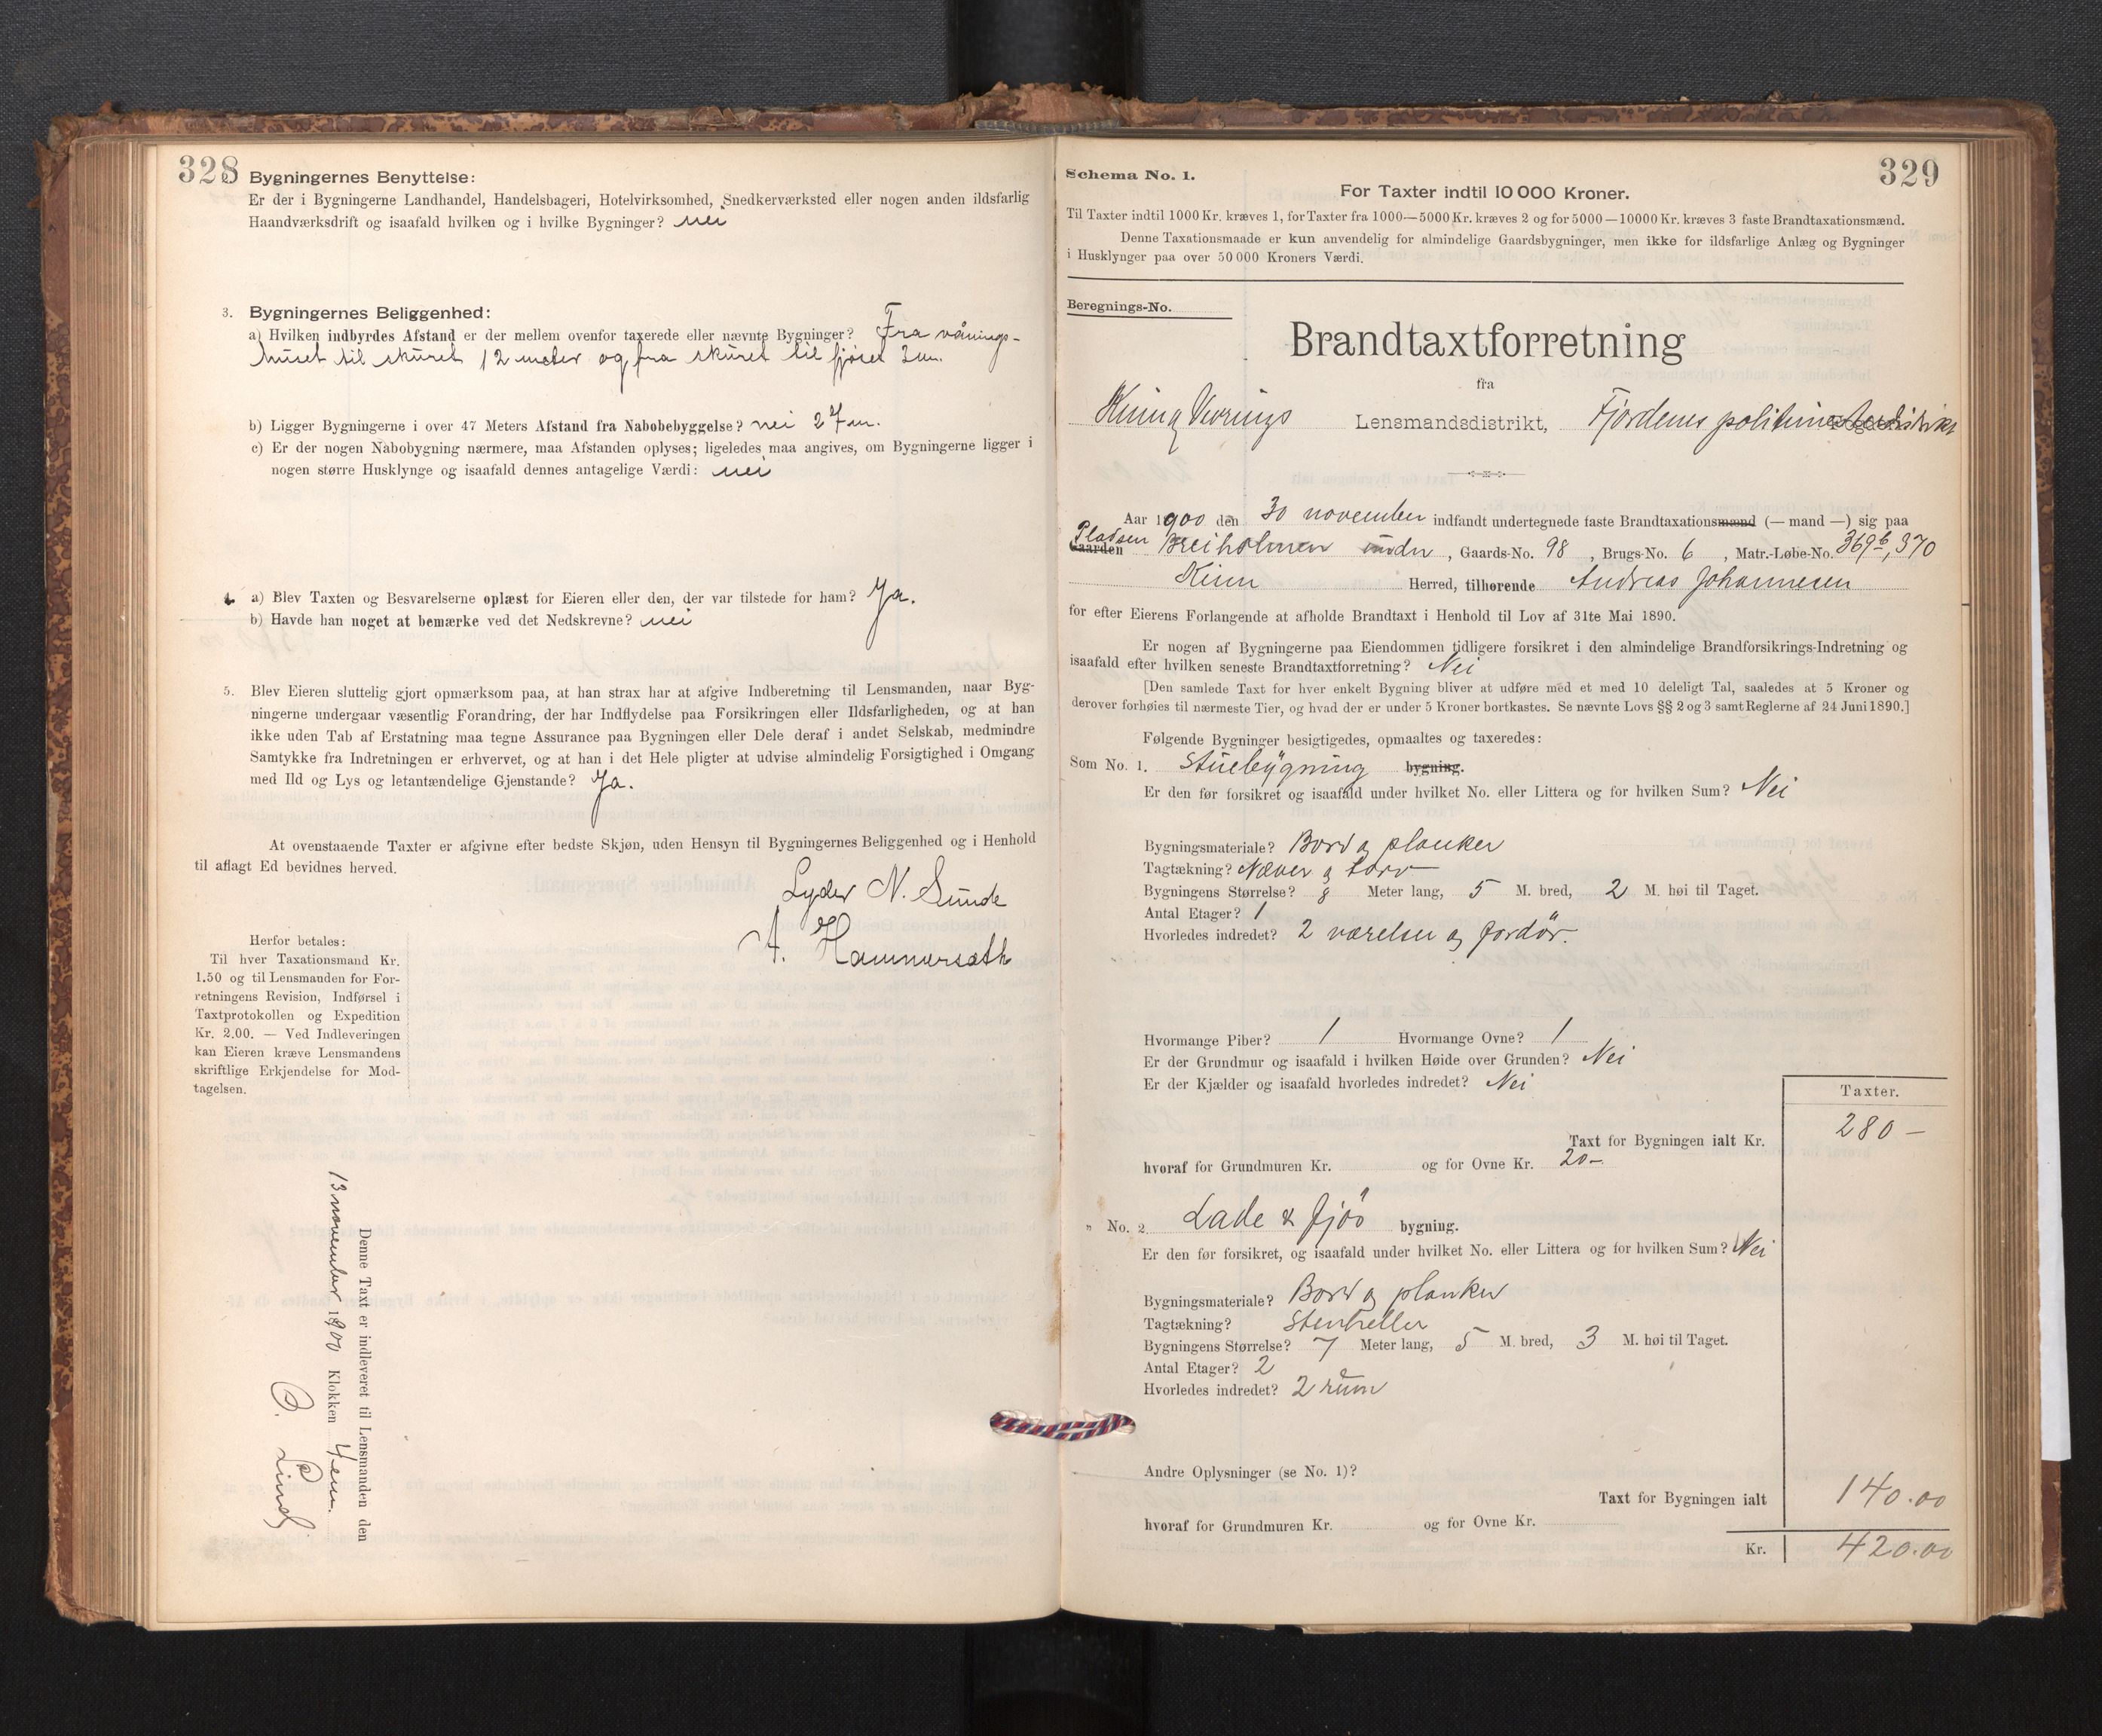 328
Bygningernes Benyttelse:
Er der i Bygningerne Landhandel, Handelsbageri, Hotelvirksomhed, Snedkerværksted eller nogen anden ildsfarlig
Haandværksdrift og isaafald hvilken og i hvilke Bygninger? nei
3. Bygningernes Beliggenhed:
a) Hvilken indbyrdes Afstand er der mellem ovenfor taxerede eller nævnte Bygninger? Fra vånings-
huset til skuret 12 meter og fra skuret til fjøset 2 m.
b) Ligger Bygningerne i over 47 Meters Afstand fra Nabobebyggelse? nei 27 m.
c) Er der nogen Nabobygning nærmere, maa Afstanden oplyses; ligeledes maa angives, om Bygningerne ligger i
nogen større Husklynge og isaafald dennes antagelige Værdi: nei
4. a) Blev Taxten og Besvarelserne oplæst for Eieren eller den, der var tilstede for ham? Ja.
b) Havde han noget at bemærke ved det Nedskrevne? nei
5. Blev Eieren sluttelig gjort opmærksom paa, at han strax har at afgive Indberetning til Lensmanden, naar Byg-
ningerne undergaar væsentlig Forandring, der har Indflydelse paa Forsikringen eller Ildsfarligheden, og at han
ikke uden Tab af Erstatning maa tegne Assurance paa Bygningen eller Dele deraf i andet Selskab, medmindre
Samtykke fra Indretningen er erhvervet, og at han i det Hele pligter at udvise almindelig Forsigtighed i Omgang
med Ild og Lys og letantændelige Gjenstande? Ja.
At ovenstaaende Taxter er afgivne efter bedste Skjøn, uden Hensyn til Bygningernes Beliggenhed og i Henhold
til aflagt Ed bevidnes herved.
Lyder N. Sunde
A. Hammersæth
Herfor betales:
Til hver Taxationsmand Kr.
1.50 og til Lensmanden for For-
retningens Revision, Indførsel i
Taxtprotokollen og Expedition
Kr. 2.00. — Ved Indleveringen
kan Eieren kræve Lensmandens
skriftlige Erkjendelse for Mod-
tagelsen.
Denne Taxt er indleveret til Lensmanden den
13 november 1900 Klokken 4 em.
O. Lind
329
Schema No. 1.
For Taxter indtil 10 000 Kroner.
Til Taxter indtil 1000 Kr. kræves 1, for Taxter fra 1000—5000 Kr. kræves 2 og for 5000—10000 Kr. kræves 3 faste Brandtaxationsmænd.
Denne Taxationsmaade er kun anvendelig for almindelige Gaardsbygninger, men ikke for ildsfarlige Anlæg og Bygninger
i Husklynger paa over 50 000 Kroners Værdi.
Beregnings-No.
Brandtaxtforretning
fra
Kinn og Vevrings Lensmandsdistrikt, Fjordenes politimesterdistrikt
Aar 1900 den 30 november indfandt undertegnede faste Brandtaxationsmænd (— mand —) sig paa
Gaarden Pladsen Breiholmen under, Gaards-No. 98, Brugs-No. 6, Matr.-Løbe-No. 369b, 370
Kinn Herred, tilhørende Andreas Johannesen
for efter Eierens Forlangende at afholde Brandtaxt i Henhold til Lov af 31te Mai 1890.
Er nogen af Bygningerne paa Eiendommen tidligere forsikret i den almindelige Brandforsikrings-Indretning og
isaafald efter hvilken seneste Brandtaxtforretning? Nei
[Den samlede Taxt for hver enkelt Bygning bliver at udføre med et med 10 deleligt Tal, saaledes at 5 Kroner og
derover forhøies til nærmeste Tier, og hvad der er under 5 Kroner bortkastes. Se nævnte Lovs §§ 2 og 3 samt Reglerne af 24 Juni 1890.]
Følgende Bygninger besigtigedes, opmaaltes og taxeredes:
Som No. 1. Stuebygning bygning.
Er den før forsikret og isaafald under hvilket No. eller Littera og for hvilken Sum? Nei
Bygningsmateriale? Bord og planker
Tagtækning? Næver og torv
Bygningens Størrelse? 8 Meter lang, 5 M. bred, 2 M. høi til Taget.
Antal Etager? 1
Hvorledes indredet? 2 værelser og fordør.
Hvormange Piber? 1 Hvormange Ovne? 1
Er der Grundmur og isaafald i hvilken Høide over Grunden? Nei
Er der Kjælder og isaafald hvorledes indredet? Nei
Taxter.
Taxt for Bygningen ialt Kr. 280 —
hvoraf for Grundmuren Kr. og for Ovne Kr. 20 —
" No. 2. Lade & fjøs bygning.
Er den før forsikret, og isaafald under hvilket No. eller Littera og for hvilken Sum? Nei
Bygningsmateriale? Bord og planker
Tagtækning? Stenheller
Bygningens Størrelse? 7 Meter lang, 5 M. bred, 3 M. høi til Taget.
Antal Etager? 2
Hvorledes indredet? 2 rum
Andre Oplysninger (se No. 1)?
Taxt for Bygningen ialt 140.00
hvoraf for Grundmuren Kr. og for Ovne Kr.
Kr. 420.00